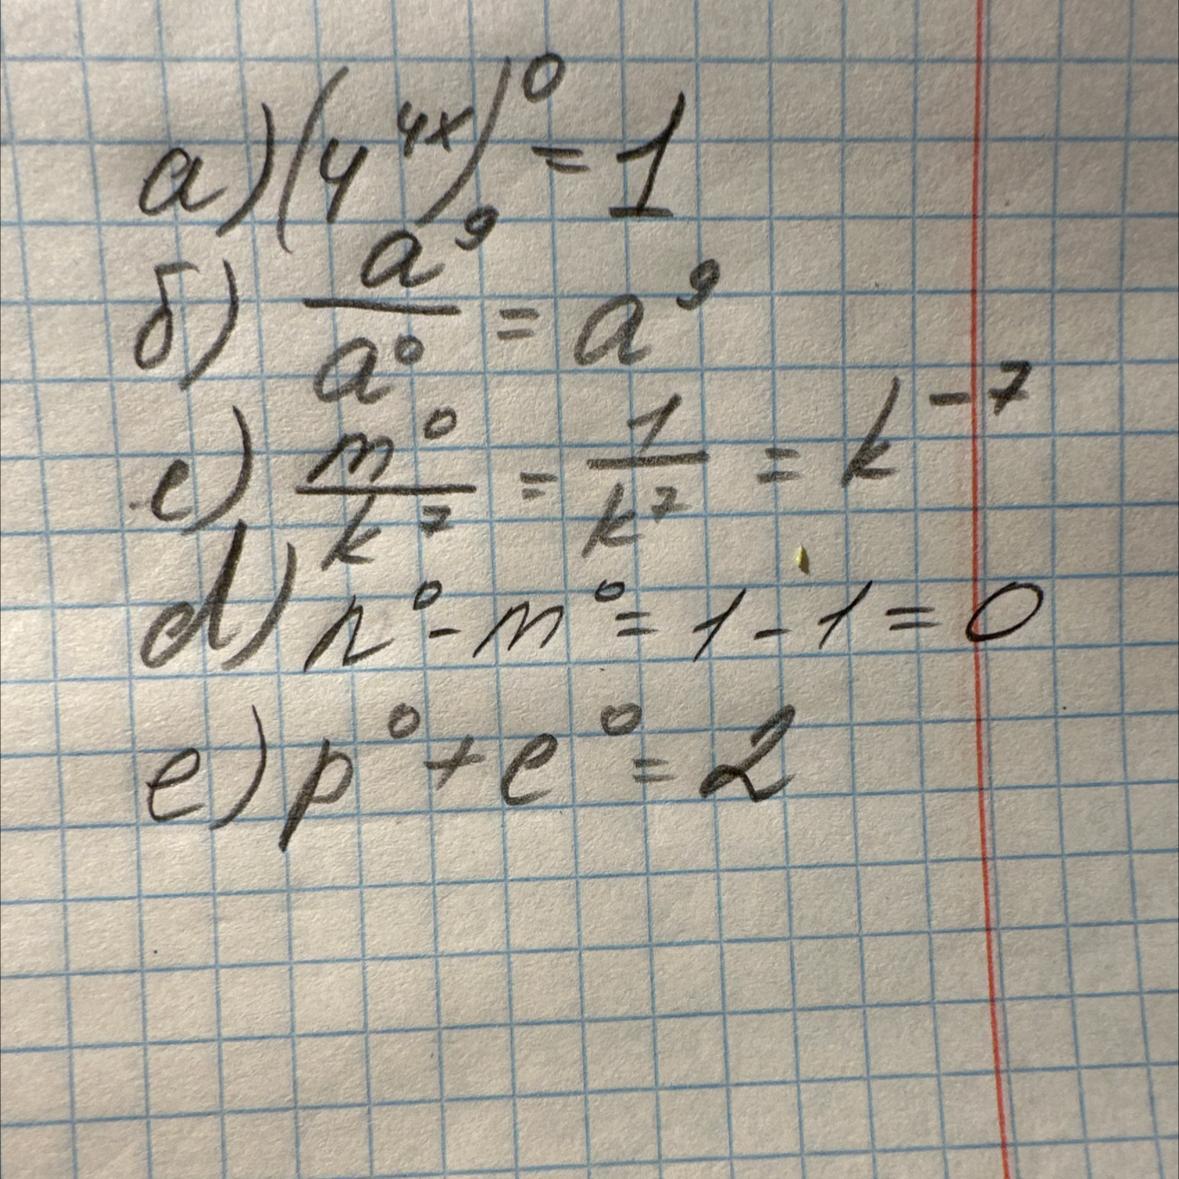 a) (4^{4x})^0 = 1
б) a^9 / a^0 = a^9
c) m^0 / k^7 = 1 / k^7 = k^{-7}
d) n^0 - m^0 = 1 - 1 = 0
e) p^0 + e^0 = 2